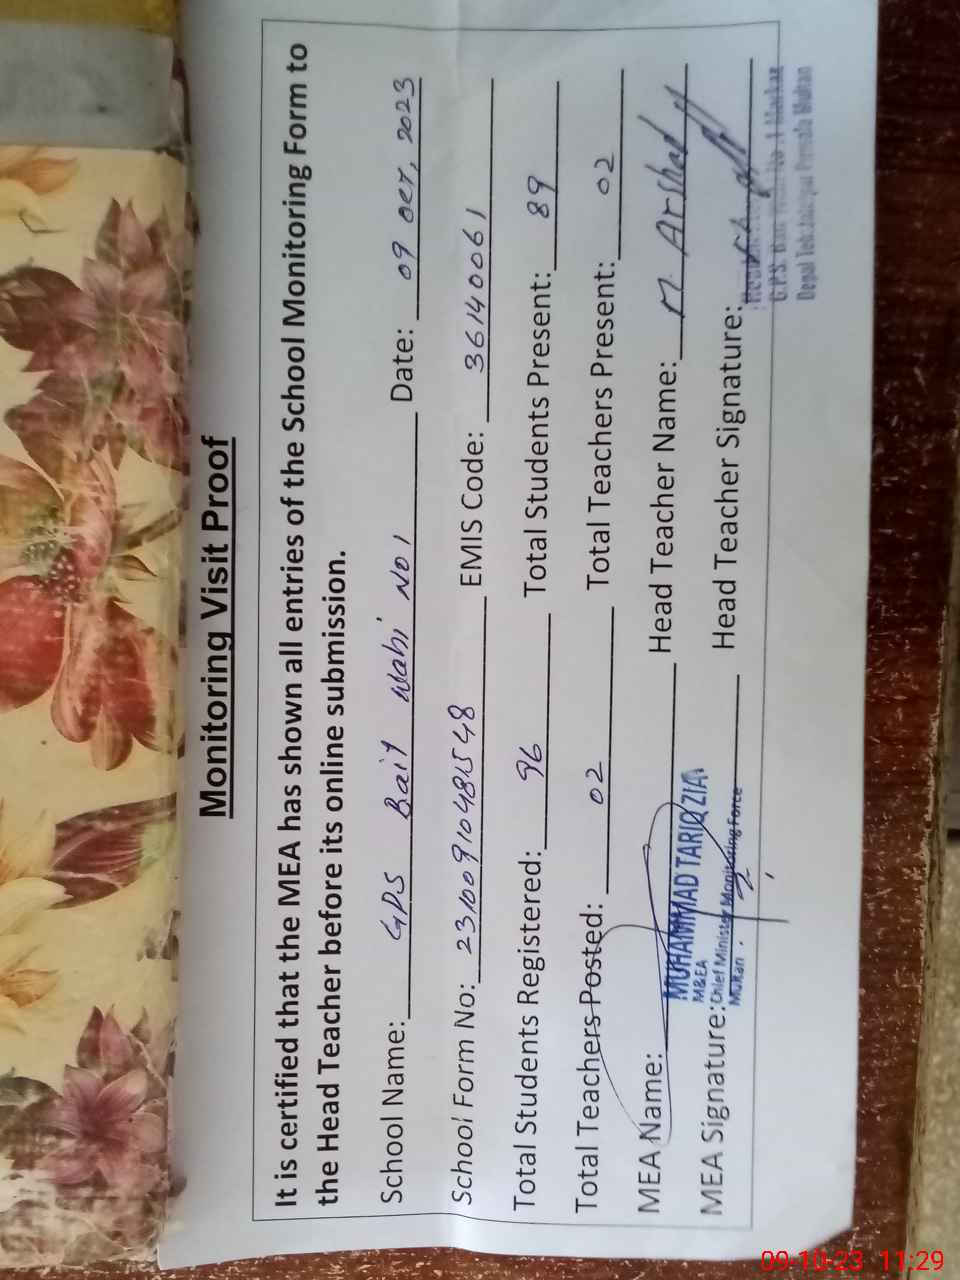 Monitoring Visit Proof
It is certified that the MEA has shown all entries of the School Monitoring Form to
the Head Teacher before its online submission.
School Name: GPS Bait Wahi NO1 Date: 09 Oct, 2023
School Form No: 23100910481548 EMIS Code: 36140061
Total Students Registered: 96 Total Students Present: 89
Total Teachers Posted: 02 Total Teachers Present: 02
MEA Name: MUHAMMAD TARIQ ZIA Head Teacher Name: M Arshad
M&EA
MEA Signature: Chief Minister Monitoring Force Head Teacher Signature:
Multan
G.P.S. No. 1 Markaz
Multan
09-10-23 11:29